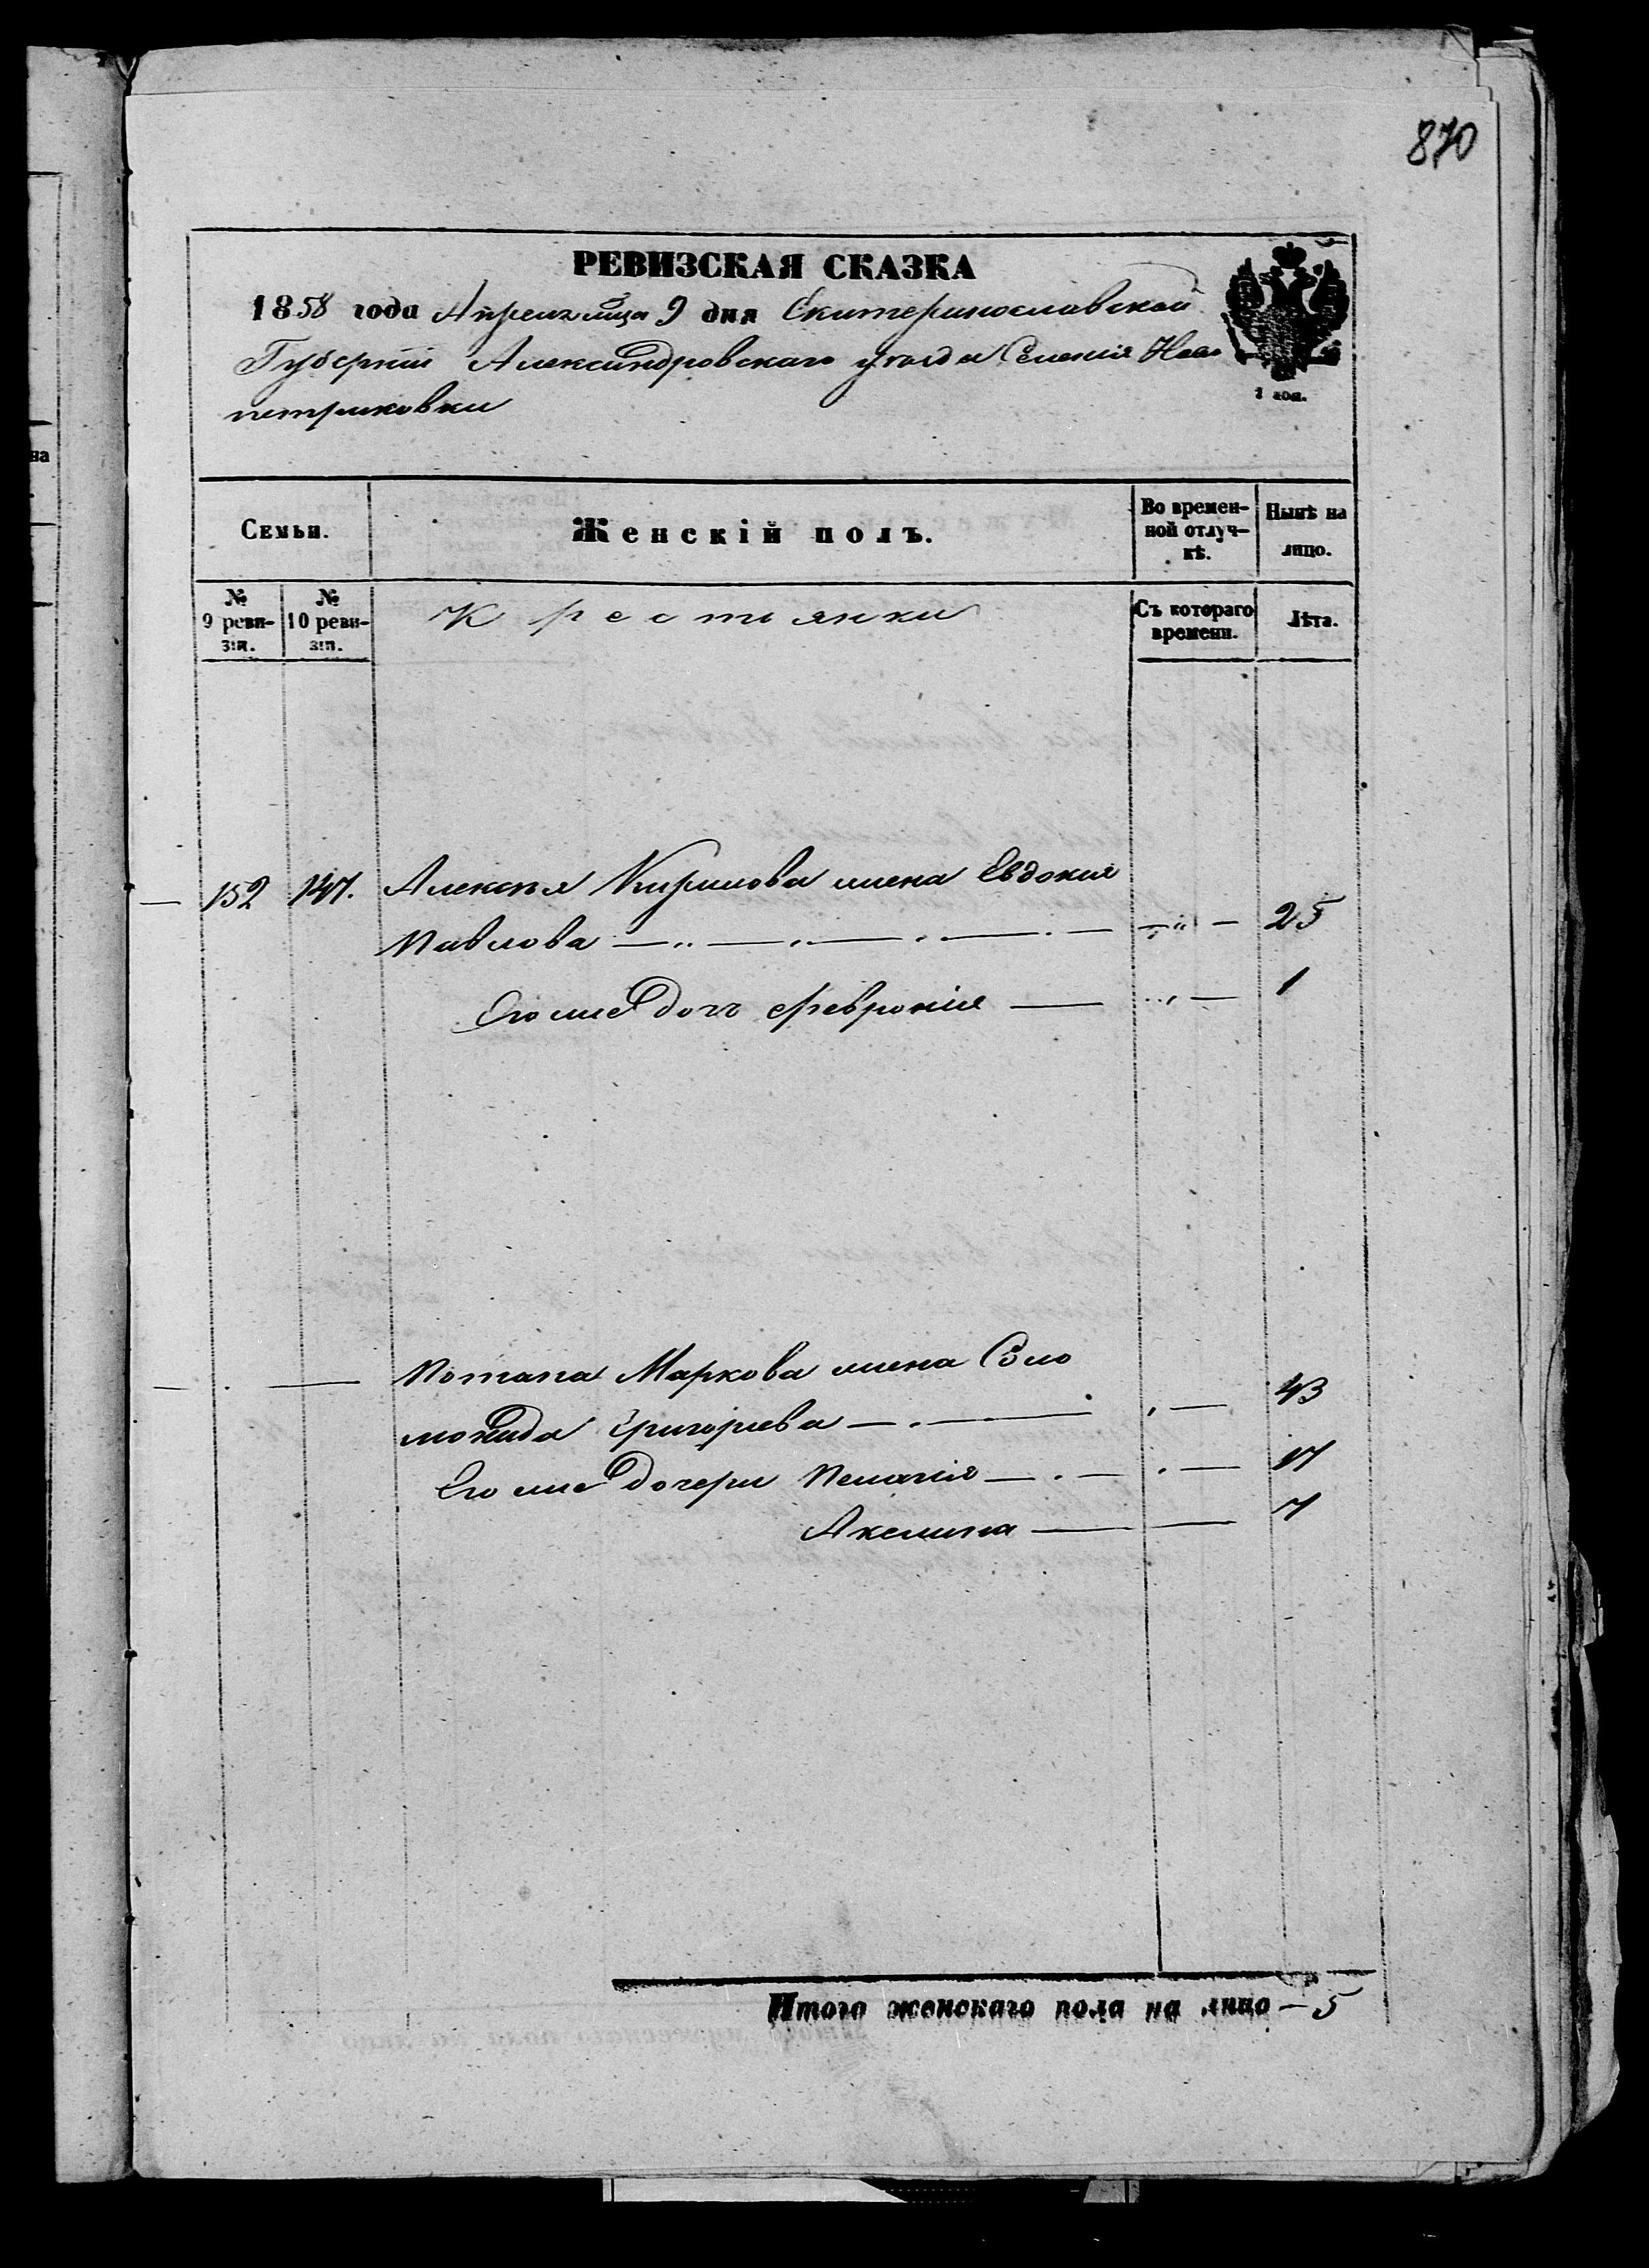 870
РЕВИЗСКАЯ СКАЗКА
1858 года Апреля мца 9 дня Екатеринославской
Губерніи Александровскаго уѣзда Селенія Ново
петриковки
2 коп.
на
Семьи.
Женскій полъ.
Во времен-
ной отлуч-
кѣ.
Нынѣ на
лицо.
№
9 реви-
зіи.
№
10 реви-
зіи.
Крестьянки
Съ котораго
времени.
Лѣта.
— 152 147. Алексѣя Кирилова жена Евдокия
Павлова — 25
Его же дочь Феврониія — 1
Потапа Маркова жена Соло
монида Григорьева — 43
Его же дочери Пелагія — 17
Акелина — 7
Итого женскаго пола на лицо — 5